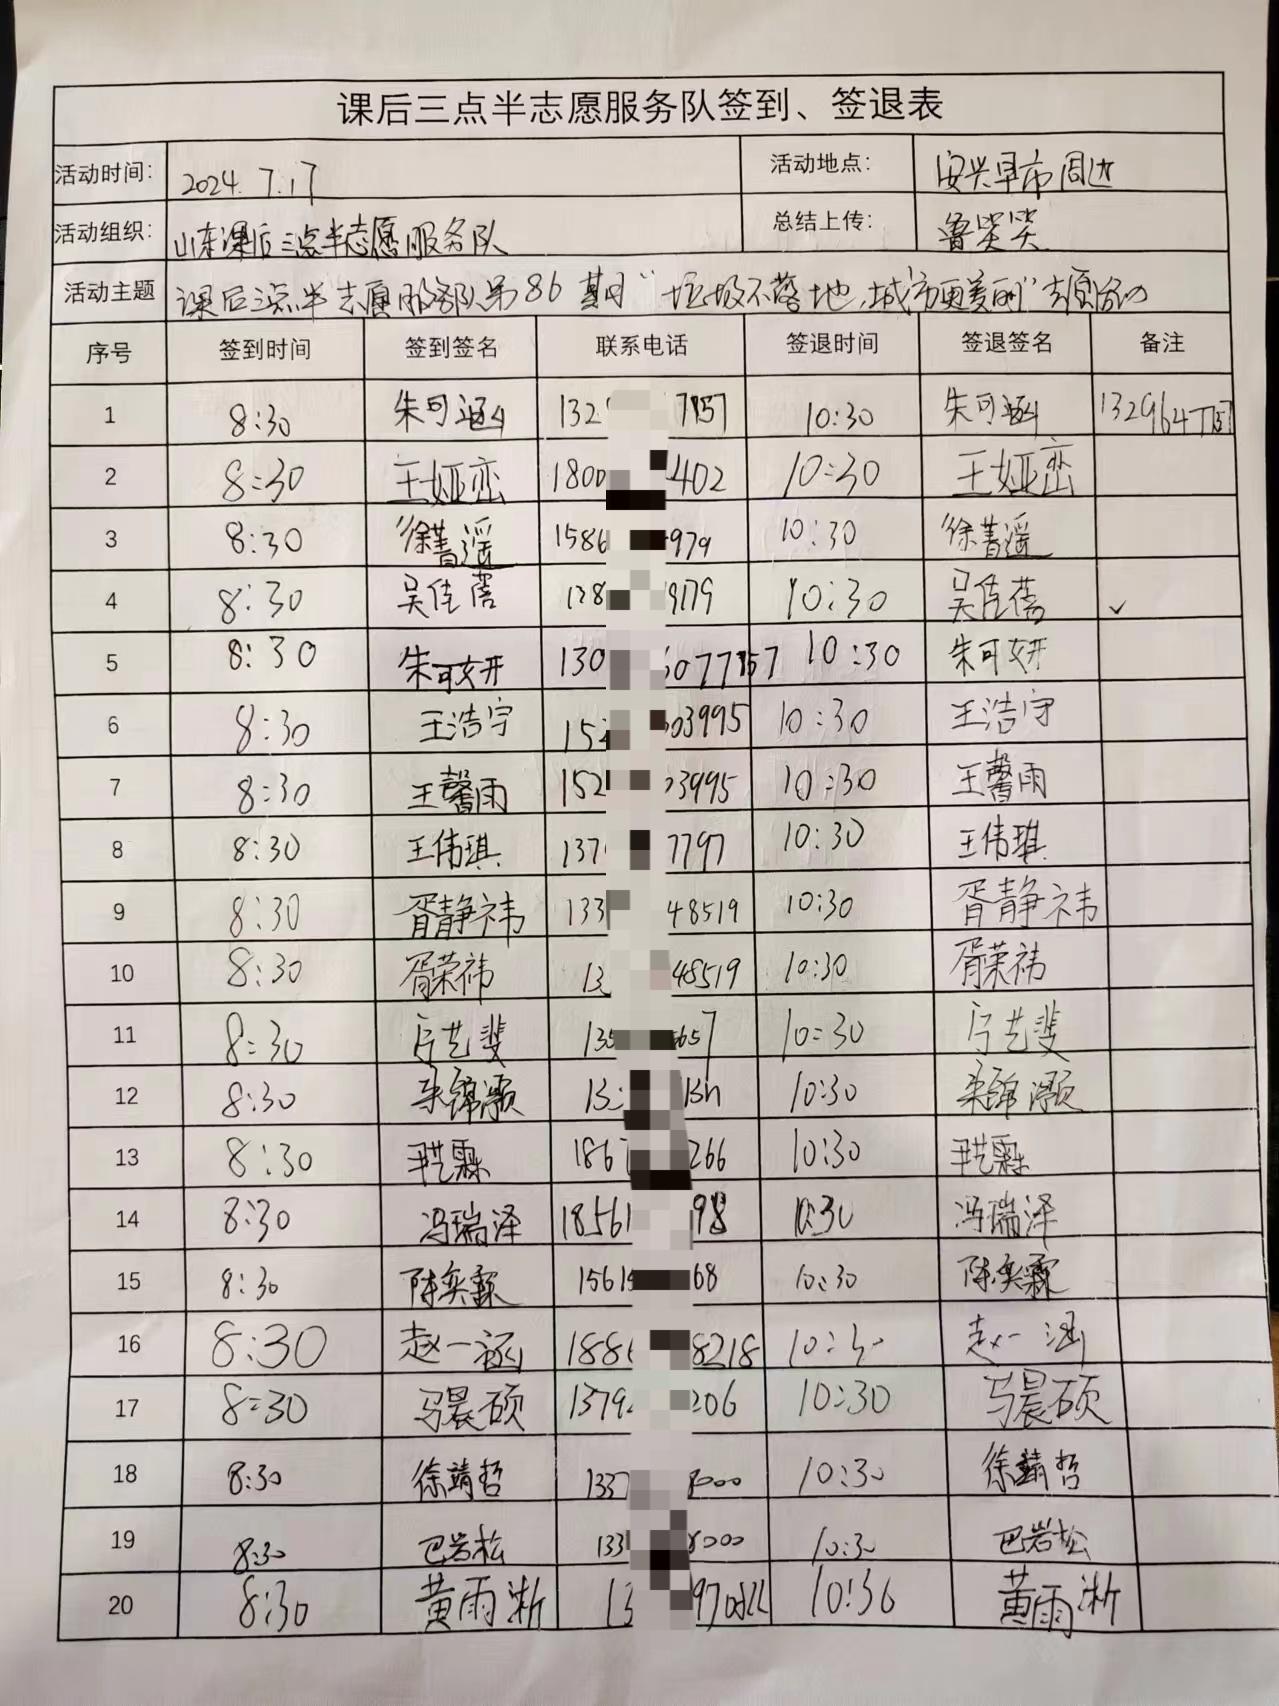 课后三点半志愿服务队签到、签退表
活动时间: 2024.7.17 活动地点: 安兴早市周边
活动组织: 山东课后三点半志愿服务队 总结上传: 鲁笑笑
活动主题 课后三点半志愿服务队第86期“垃圾不落地,城市更美丽”志愿活动
序号 签到时间 签到签名 联系电话 签退时间 签退签名 备注
1 8:30 朱可涵 132 7157 10:30 朱可涵
2 8:30 王娅峦 1800 402 10:30 王娅峦
3 8:30 徐菁遥 1586 979 10:30 徐菁遥
4 8:30 吴佳蓓 9179 10:30 吴佳蓓 ✓
5 8:30 朱可妍 130 6077157 10:30 朱可妍
6 8:30 王浩宇 152 03995 10:30 王浩宇
7 8:30 王馨雨 152 3995 10:30 王馨雨
8 8:30 王伟琪 137 7797 10:30 王伟琪
9 8:30 胥静祎 133 48519 10:30 胥静祎
10 8:30 胥荣祎 13 48519 10:30 胥荣祎
11 8:30 艺斐 135 657 10:30 艺斐
12 8:30 锦灏 13 10:30 锦灏
13 8:30 霖 186 266 10:30 霖
14 8:30 冯瑞泽 18561 98 10:30 冯瑞泽
15 8:30 陈奕霖 1561 68 10:30 陈奕霖
16 8:30 赵一涵 188 8218 10:30 赵一涵
17 8:30 马晨硕 1379 206 10:30 马晨硕
18 8:30 徐靖哲 1337 8000 10:30 徐靖哲
19 8:30 巴岩松 133 8000 10:30 巴岩松
20 8:30 黄雨淅 13 970 10:36 黄雨淅